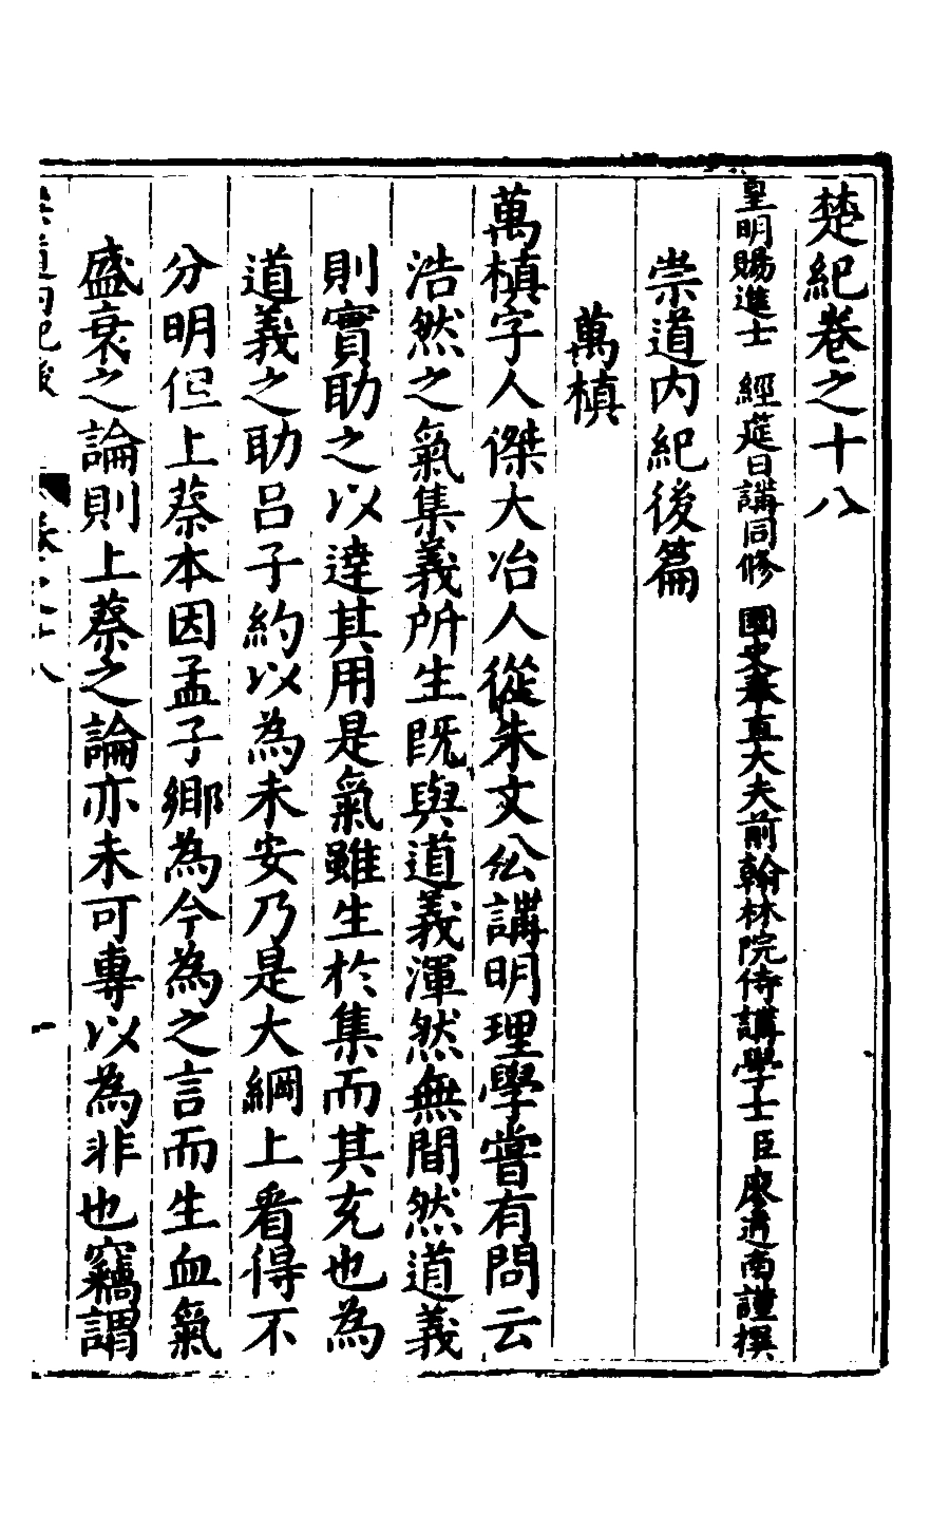 楚紀卷之十八
皇明賜進士 經筵日講同修 國史奉直大夫前翰林院侍講學士臣廖道南謹撰
崇道内紀後篇
萬槙
萬槙字人傑大冶人從朱文公講明理學嘗有問云
浩然之氣集義所生既與道義渾然無間然道義
則實助之以達其用是氣雖生於集而其充也為
道義之助呂子約以為未安乃是大綱上看得不
分明但上蔡本因孟子鄉為今為之言而生血氣
盛衰之論則上蔡之論亦未可專以為非也竊謂